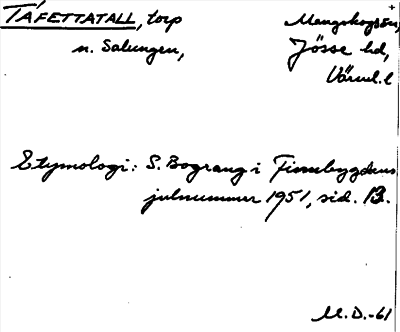 TÅFETTATALL, torp Mangskogs sn,
n. Salungen, Jösse hd,
Värml. l
Etymologi: S. Bograng i Finnbygdens
julnummer 1951, sid. 13.
M. D. -61